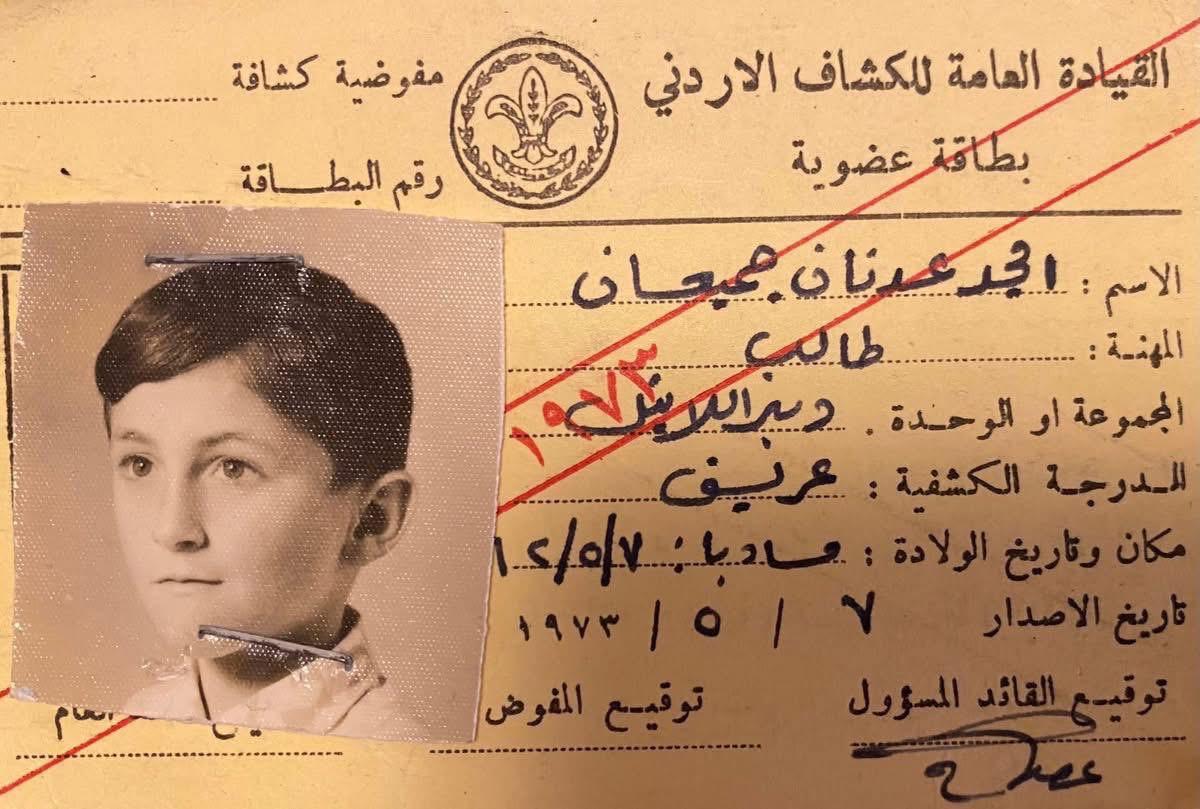 القيادة العامة للكشاف الاردني
مفوضية كشافة
بطاقة عضوية
رقم البطاقة
الاسم : امجد عدنان جميعان
المهنة : طالب
١٩٧٣
المجموعة او الوحدة . دير اللاتين
الدرجة الكشفية : عريف
مكان وتاريخ الولادة : مادبا :
تاريخ الاصدار ٧ / ٥ / ١٩٧٣
توقيع القائد المسؤول
توقيع المفوض
العام